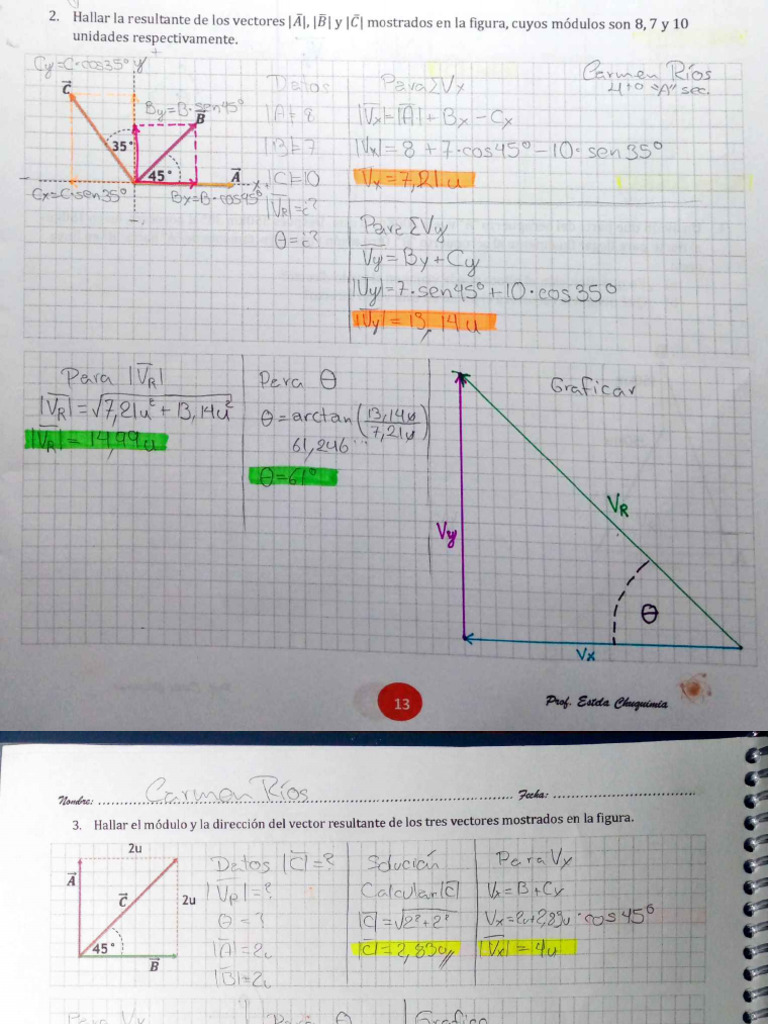 2. Hallar la resultante de los vectores |A̅|, |B̅| y |C̅| mostrados en la figura, cuyos módulos son 8, 7 y 10
unidades respectivamente.
Cy=C·cos35° y
C
By=B·sen45°
B
35°
45°
A
x
Cx=C·sen35°
Bx=B·cos45°
Datos
|A|=8
|B|=7
|C|=10
|VR|=¿?
θ=¿?
Para ΣVx
|Vx|=|A|+Bx-Cx
|Vx|=8+7·cos45°-10·sen35°
Vx=7,21u
Para ΣVy
Vy=By+Cy
|Vy|=7·sen45°+10·cos35°
|Vy|=13,14u
Carmen Ríos
4to "A" sec.
Para |VR|
|VR|=√7,21u²+13,14u²
|VR|=14,99u
Para θ
θ=arctan(13,14u/7,21u)
61,246...
θ=61°
Graficar
VR
Vy
θ
Vx
13
Prof. Estela Chuquimia
Nombre: Carmen Ríos Fecha:
3. Hallar el módulo y la dirección del vector resultante de los tres vectores mostrados en la figura.
2u
A
C
2u
45°
B
Datos |C|=?
|VR|=?
θ=?
|A|=2u
|B|=2u
Solución
Calcular|C|
|C|=√2²+2²
|C|=2,83u
Para Vx
Vx=B+Cx
Vx=2u+2,83u·cos45°
|Vx|=4u
Para Vy
Para θ
Grafico